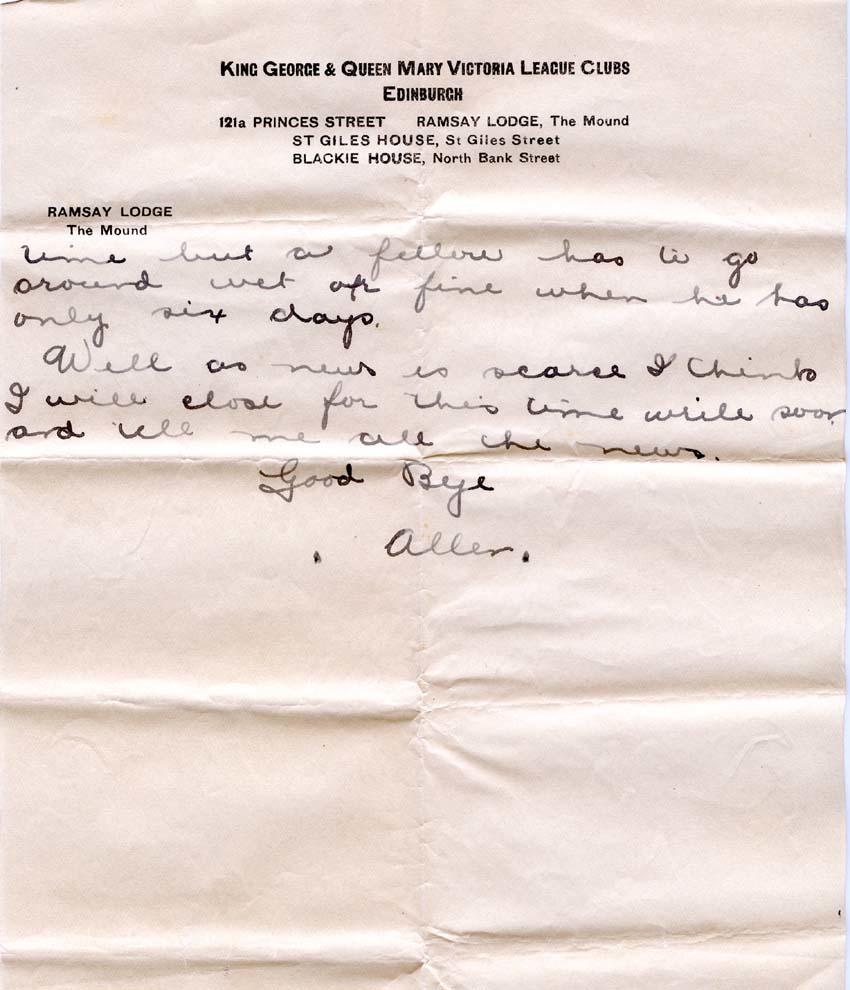 KING GEORGE & QUEEN MARY VICTORIA LEAGUE CLUBS
EDINBURGH
121a PRINCES STREET RAMSAY LODGE, The Mound
ST GILES HOUSE, St Giles Street
BLACKIE HOUSE, North Bank Street
RAMSAY LODGE
The Mound
time but a fellow has to go
around wet or fine when he has
only six days.
Well as news is scarce I think
I will close for this time write soon
and tell me all the news.
Good Bye
Allen.